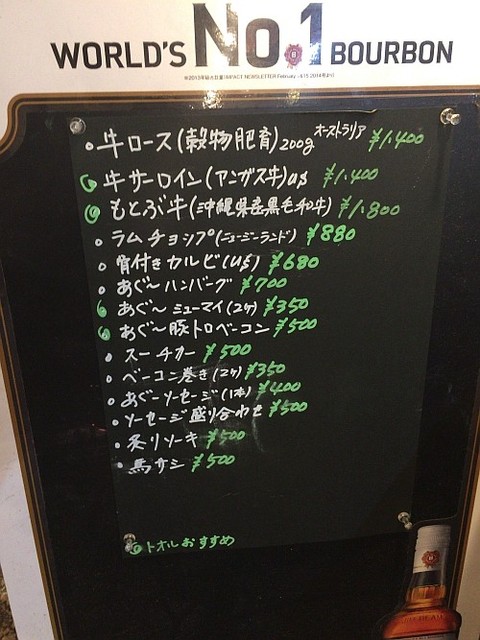 WORLD'S No.1 BOURBON
・牛ロース(穀物肥育)200g オーストラリア ¥1.400
牛サーロイン(アンガス牛)us ¥1.400
もとぶ牛(沖縄県産黒毛和牛) ¥1.800
ラムチョップ(ニュージーランド) ¥880
骨付きカルビ(us) ¥680
あぐ〜ハンバーグ ¥700
あぐ〜ミューマイ(2ケ) ¥350
あぐ〜豚トロベーコン ¥500
・スーチカー ¥500
・ベーコン巻き(2ケ) ¥350
・あぐーソーセージ(1本) ¥400
・ソーセージ盛り合わせ ¥500
・炙りソーキ ¥500
・馬サシ ¥500
トオルおすすめ